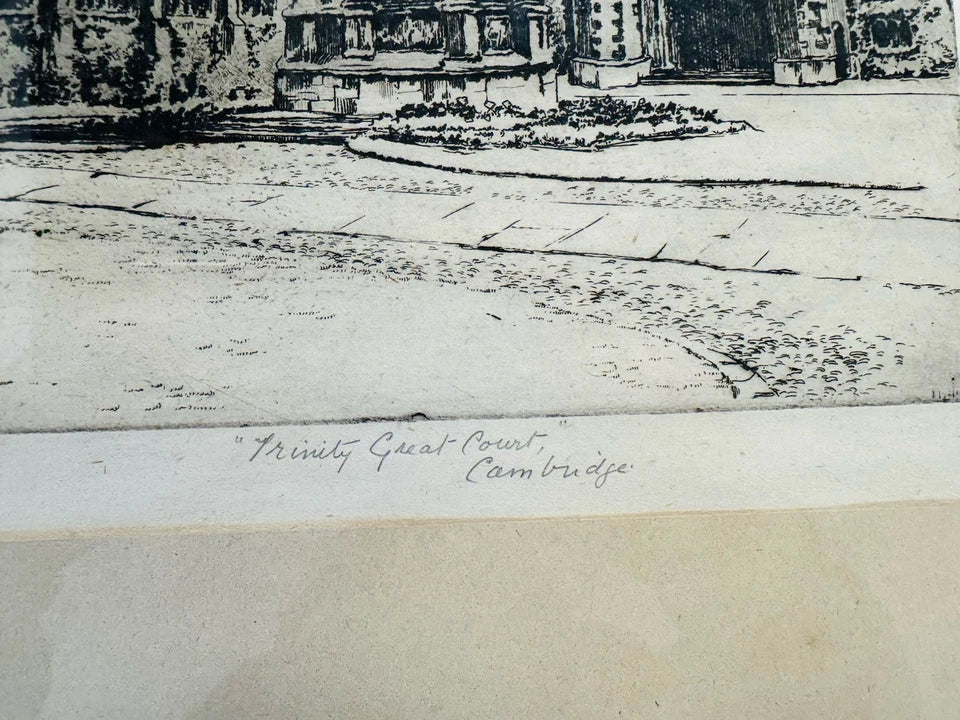 "Trinity Great Court,"
Cambridge.